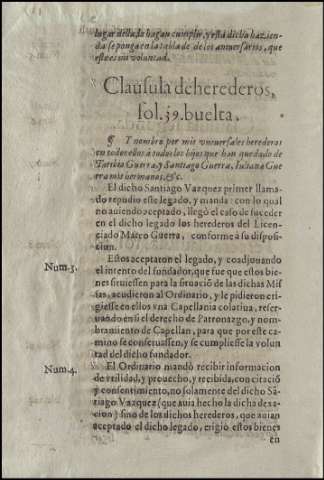 lugar della, lo hagan cumplir, y està dicha hazien-
da se ponga en la tabla de de los aniuersarios, que
esta es mi voluntad.
Clausula de herederos,
fol. 39. buelta.
¶ Y nombro por mis vniuersales herederos
en todo ellos à todos los hijos que han quedado de
Guerra, y Santiago Guerra, Iuliana Gue
rra mis hermanos, &c.
El dicho Santiago Vazquez primer llama-
do repudio este legado, y manda: con lo qual
no auiendo aceptado, llegò el caso de suceder
en el dicho legado los herederos del Licen-
ciado Marco Guerra, conforme à su disposi-
cion.
Num.3. Estos aceptaron el legado, y coadjuuando
el intento del fundador, que fue que estos bie-
nes siruiessen para la situació de las dichas Mis-
sas, acudieron al Ordinario, y le pidieron eri-
giesse en ellos vna Capellania colatiua, reser-
uando en si el derecho de Patronazgo, y nom-
bramiento de Capellan, para que por este cá-
mino se conseruassen, y se cumpliesse la volun
tad del dicho fundador.
Num.4. El Ordinario mandò recibir informacion
de vtilidad, y prouecho, y recibida, con citació
y consentimiento, no solamente del dicho Sã-
tiago Vazquez (que auia hecho la dicha dexa-
cion) sino de los dichos herederos, que auian
aceptado el dicho legado, erigiò estos bienes
en